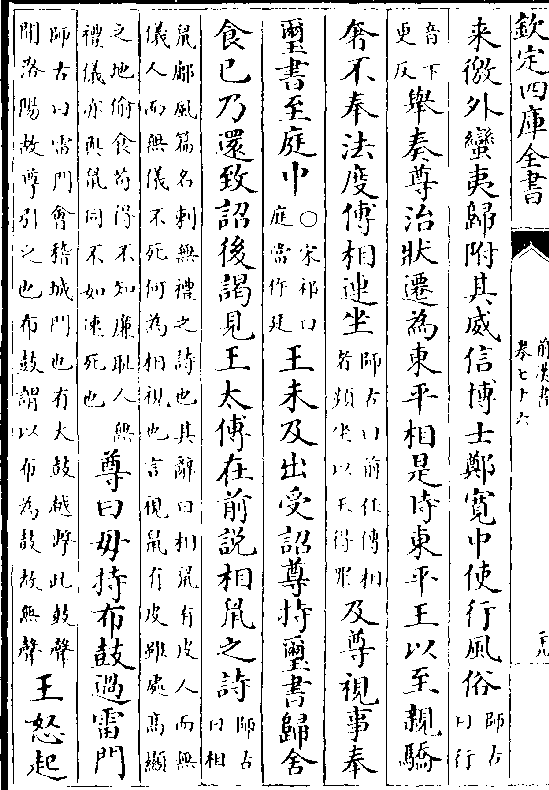 欽定四庫全書
前漢書
卷七十六
來徼外蠻夷歸附其威信博士鄭寬中使行風俗師古
曰行
音下
更反舉奏尊治狀遷為東平相是時東平王以至親驕
奢不奉法度傅相連坐師古曰前任傅相
者頻坐以王得罪及尊視事奉
璽書至庭中○宋祁曰
庭當作廷王未及出受詔尊持璽書歸舍
食已乃還致詔後謁見王太傅在前說相鼠之詩師古
曰相
鼠鄘風篇名刺無禮之詩也其辭曰相鼠有皮人而無
儀人而無儀不死何為相視也言視鼠有皮雖處高顯
之地偷食苟得不知廉恥人無
禮儀亦與鼠同不如速死也尊曰毋持布鼓過雷門
師古曰雷門會稽城門也有大鼓越擊此鼓聲
聞洛陽故尊引之也布鼓謂以布為鼓故無聲王怒起